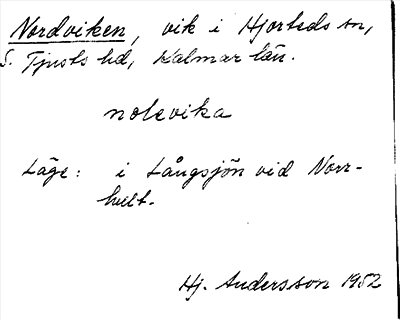 Nordviken, vik i Hjorteds sn,
S. Tjusts hd, Kalmar län.
nolevika
Läge: i Långsjön vid Norr-
hult.
Hj. Andersson 1952